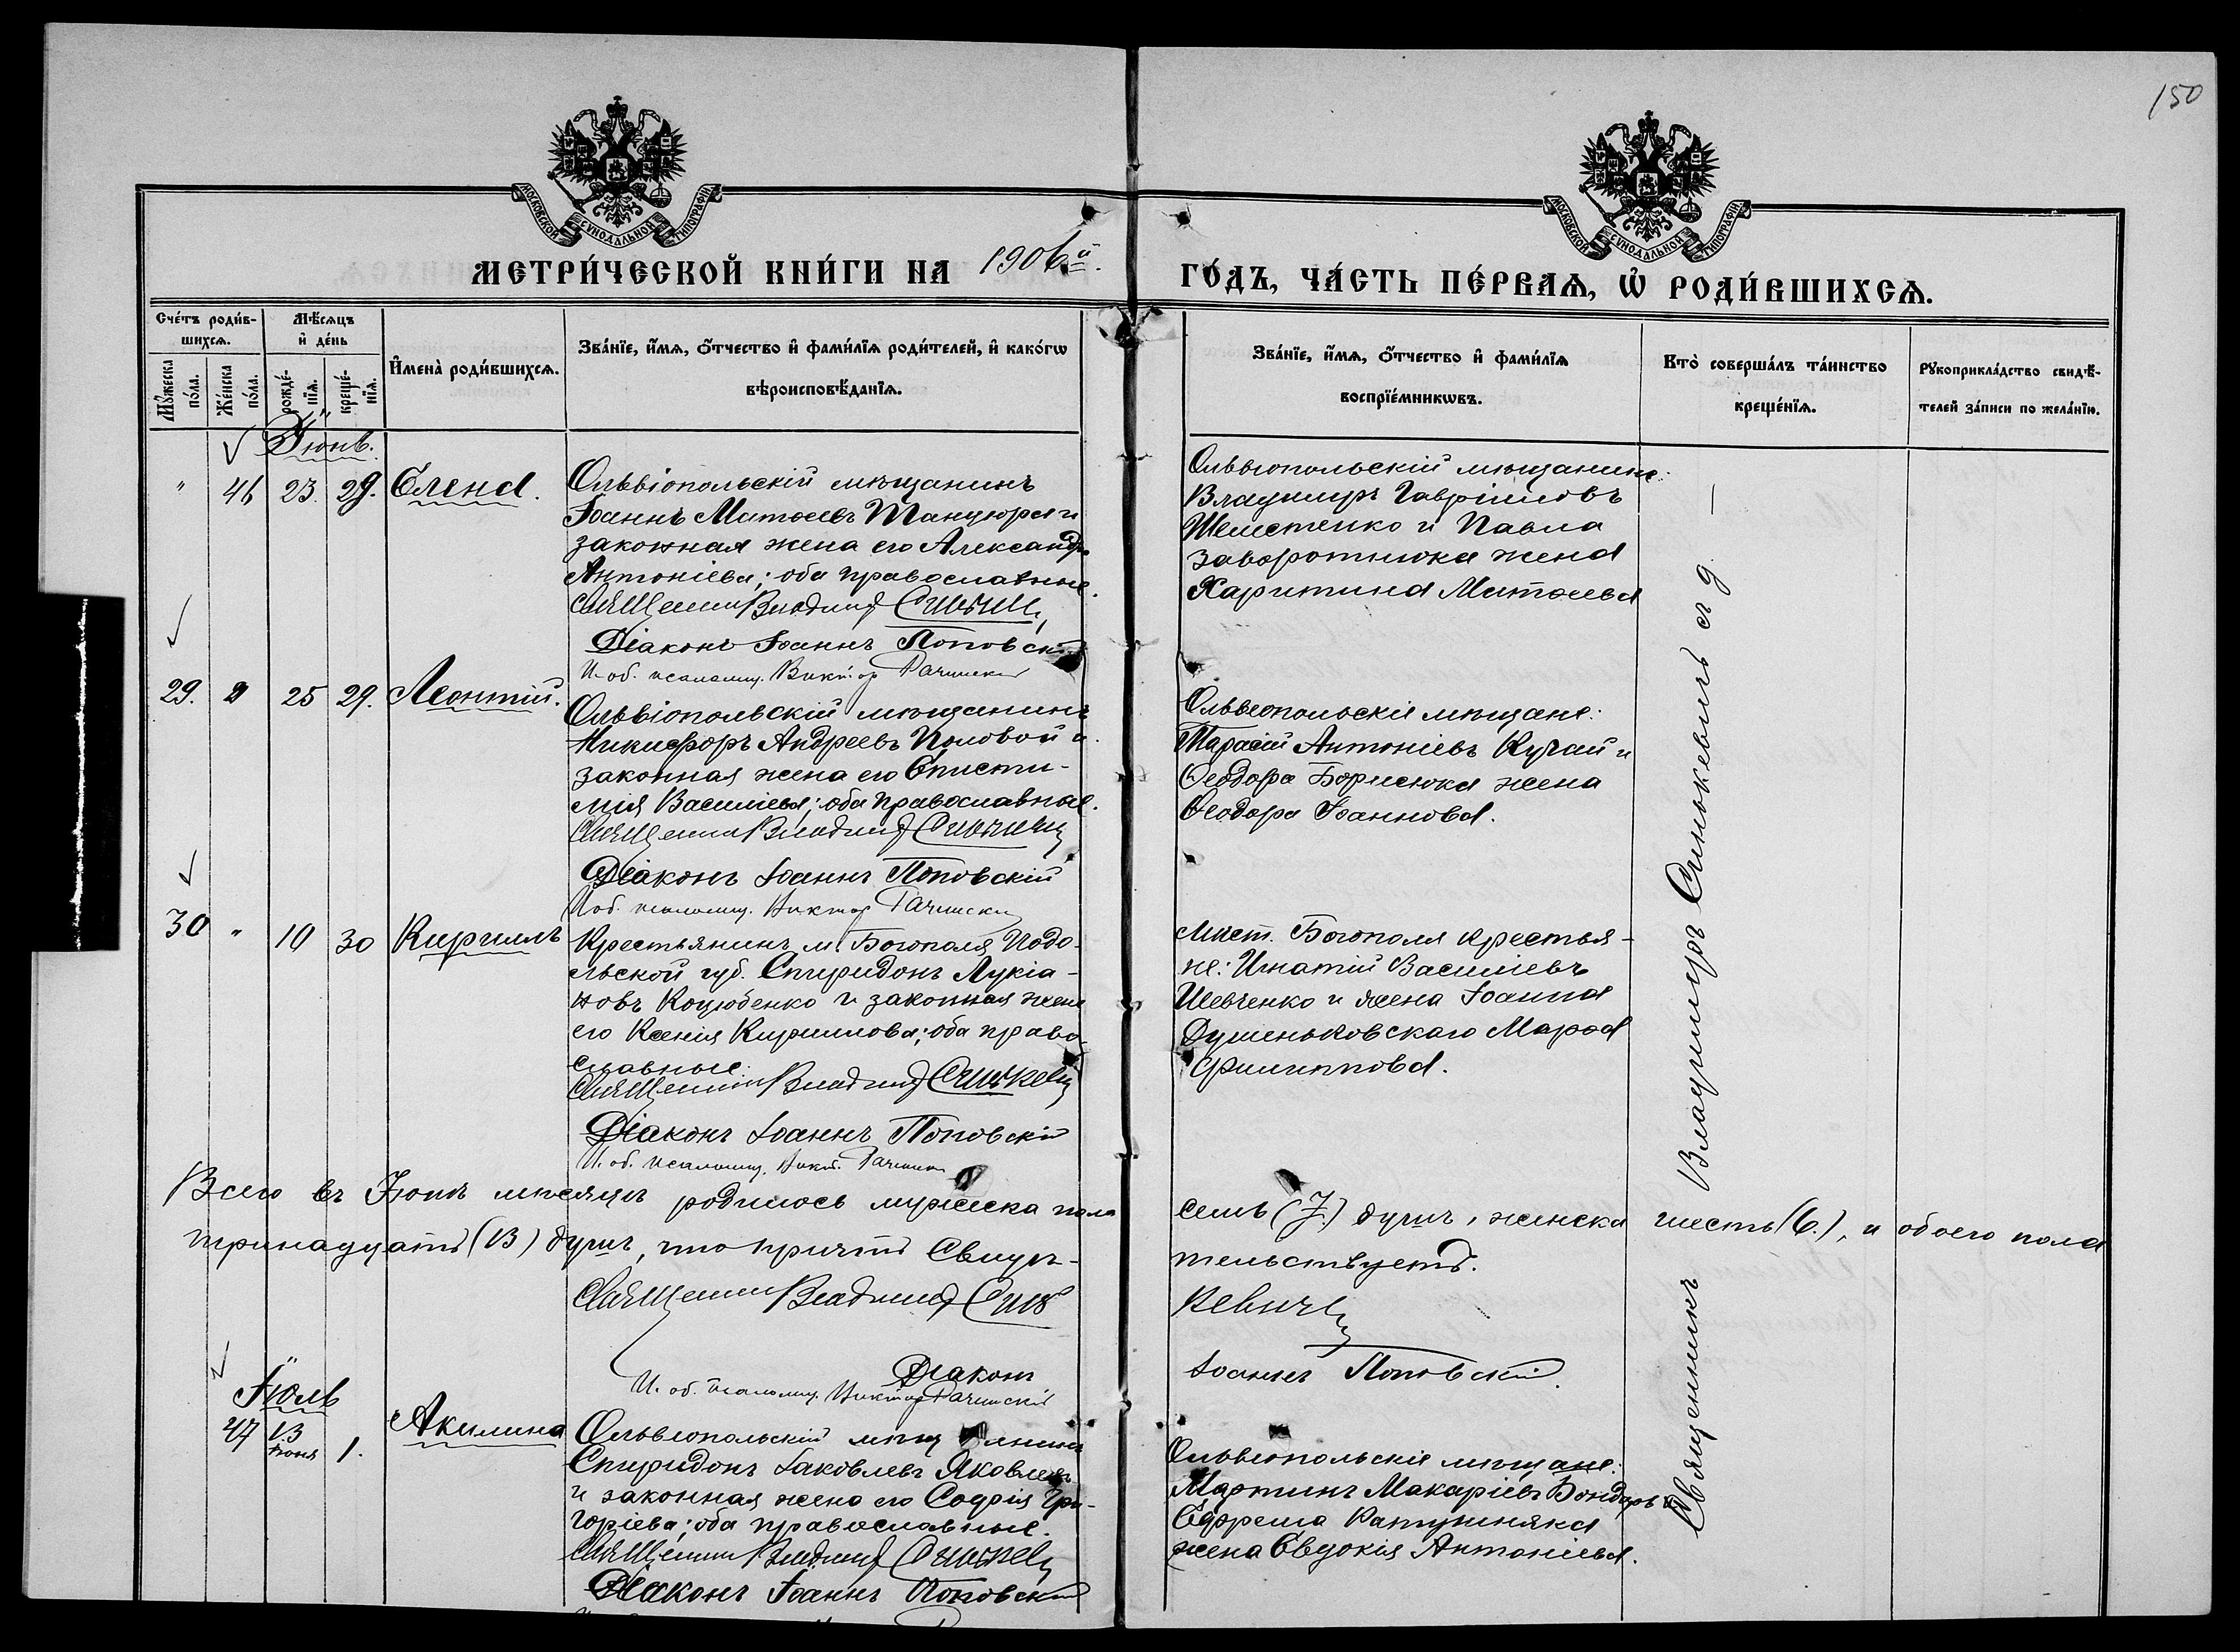 150
МОСКОВСКОЙ СѴНОДАЛЬНОЙ ТИПОГРАФІИ
МОСКОВСКОЙ СѴНОДАЛЬНОЙ ТИПОГРАФІИ
МЕТРИ́ЧЕСКОЙ КНИ́ГИ НА 1906й. ГО́ДЪ, ЧА́СТЬ ПЕ́РВАѦ, Ѡ҆ РОДИ́ВШИХСѦ.
Сче́тъ роди́вшихсѧ.
Мꙋ́жеска по́ла.
Же́нска по́ла.
Мѣ́сѧцъ и҆ де́нь
рожде́нїѧ.
креще́нїѧ.
И҆мена̀ роди́вшихсѧ.
Зва́нїе, и҆́мѧ, ѻ҆́тчество и҆ фами́лїѧ роди́телей, и҆ како́гѡ
вѣроисповѣ́данїѧ.
Зва́нїе, и҆́мѧ, ѻ҆́тчество и҆ фами́лїѧ
воспрїе́мникѡвъ.
Кто̀ соверша́лъ та́инство
креще́нїѧ.
Рꙋкоприкла́дство свидѣ́-
телей за́писи по жела́нїю.
Іюнь.
" 46 23. 29. Елена.
Ольвіопольскій мѣщанинъ
Іоаннъ Матѳеевъ Танцюра и
законная жена его Александра
Антоніева; оба православные.
Священникъ Владимір Синькевич
Діаконъ Іоаннъ Поповскій
И. об. псаломщ. Виктор Рачинскій
Ольвіопольскій мѣщанинъ:
Владиміръ Гавріиловъ
Шелестенко и Павла
Заворотнюка жена
Харитина Матѳеева
29. " 25 29. Леонтій.
Ольвіопольскій мѣщанинъ
Никифоръ Андреевъ Половой и
законная жена его Еписти-
мія Василіева; оба православные.
Священникъ Владимір Синькевич
Діаконъ Іоаннъ Поповскій
И об. псаломщ. Виктор Рачинскій
Ольвіопольскіе мѣщане:
Тарасій Антоніевъ Кучай и
Ѳеодора Борисюка жена
Ѳеодора Іоаннова.
30 " 10 30 Кириллъ
Крестьянинъ м. Богополя Подо-
льской губ. Спиридонъ Лукіа-
новъ Коцюбенко и законная жена
его Ксенія Кириллова; оба право-
славные.
Священникъ Владимір Синькевич
Діаконъ Іоаннъ Поповскій
И. об. псаломщ. Викт. Рачинскій
Мѣст. Богополя крестья-
не: Игнатій Василіевъ
Шевченко и жена Іоанна
Душеньковскаго Марѳа
Филиппова.
Всего въ Іюнѣ мѣсяцѣ родилось мужеска пола семь (7.) душъ, женска шесть (6.), и обоего пола
тринадцать (13) душъ, что причтъ свидѣ-тельствуетъ.
Священникъ Владимір Синькевичъ
Діаконъ Іоаннъ Поповскій.
И. об. псаломщ. Виктор Рачинскій
Іюль
47 13 Іюня 1. Акилина
Ольвіопольскій мѣщанинъ
Спиридонъ Іаковлевъ Яковлевъ
и законная жена его Софія Гри-
горіева; оба православные.
Священникъ Владимір Синькевич
Діаконъ Іоаннъ Поповскій
Ольвіопольскіе мѣщане:
Мартинъ Макаріевъ Бондарь и
Ефрема Катушняка
жена Евдокія Антоніева.
Священникъ Владиміръ Синькевичъ